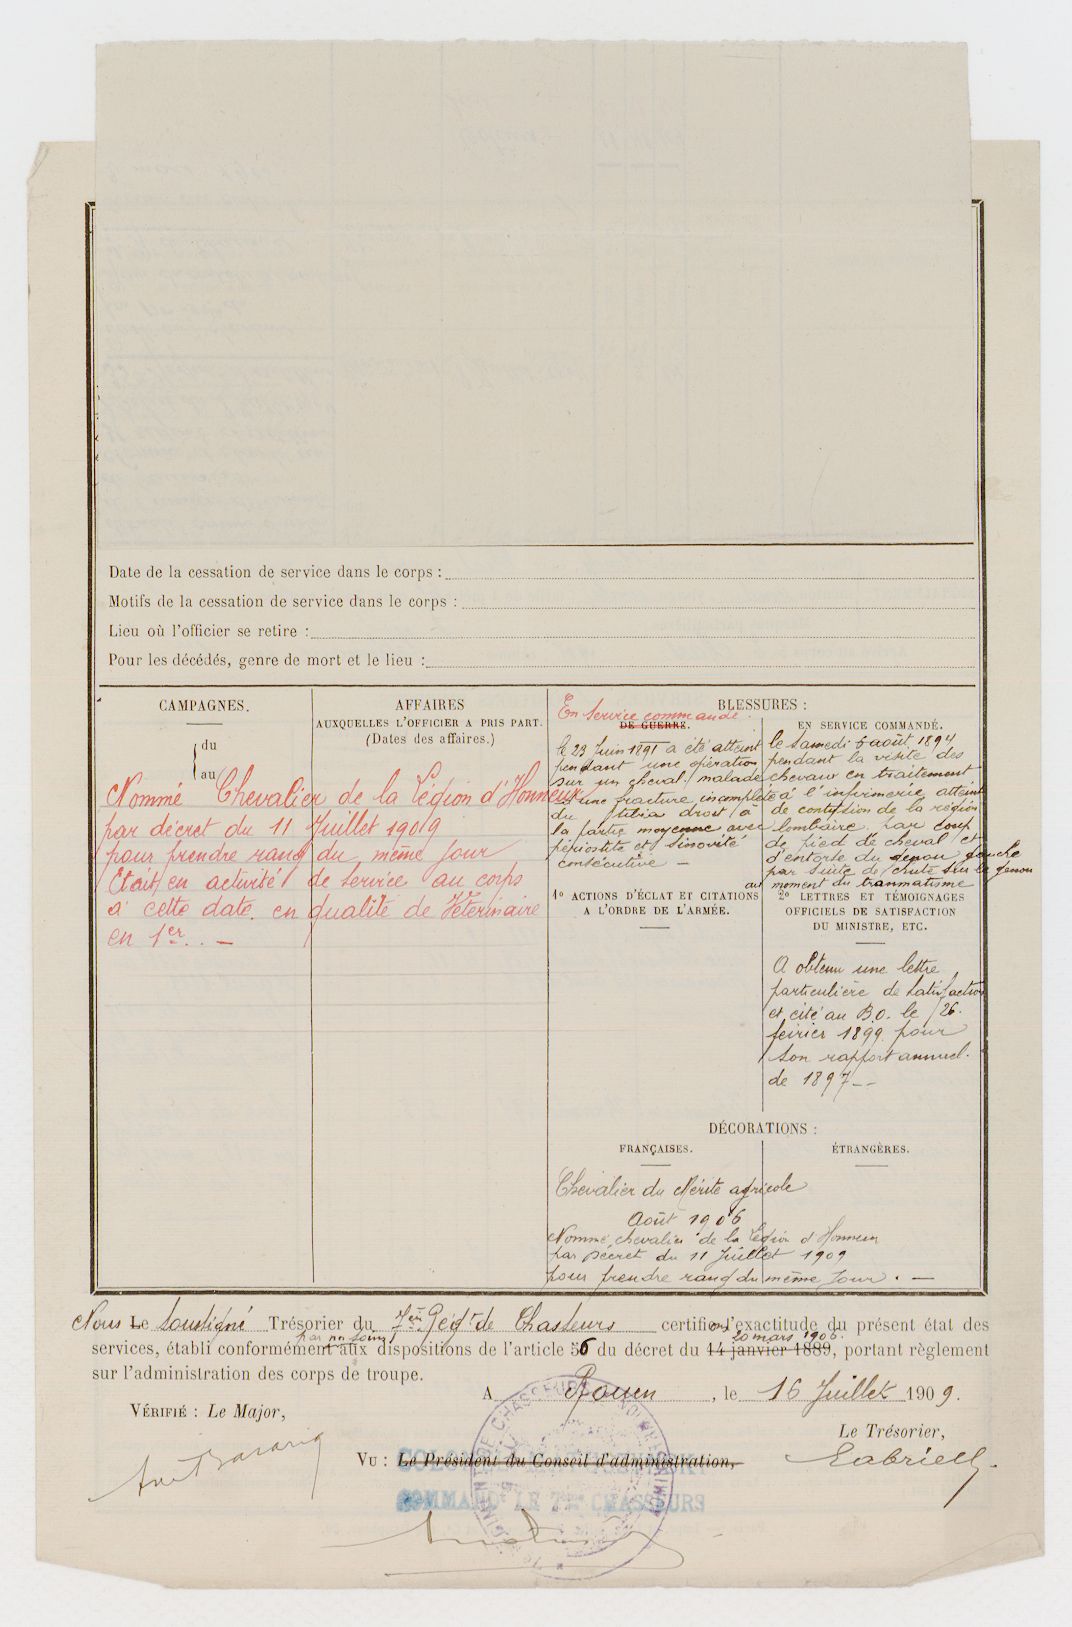 Date de la cessation de service dans le corps :
Motifs de la cessation de service dans le corps :
Lieu où l'officier se retire :
Pour les décédés, genre de mort et le lieu :
CAMPAGNES.
du
au
Nommé Chevalier de la Légion d'Honneur
par décret du 11 Juillet 1909
pour prendre rang du même jour
Etait en activité de service au corps
à cette date en qualité de Vétérinaire
en 1er. —
AFFAIRES
AUXQUELLES L'OFFICIER A PRIS PART.
(Dates des affaires.)
BLESSURES :
En service commandé.
DE GUERRE.
le 23 Juin 1891 a été atteint
pendant une opération
sur un cheval malade
d'une fracture incomplète
du tibia droit à
la partie moyenne avec
périostite et sinovité
consécutive —
EN SERVICE COMMANDÉ.
le samedi 5 août 1894
pendant la visite des
chevaux en traitement
à l'infirmerie atteint
de contusion de la région
lombaire par coup
de pied de cheval et
d'entorse du genou gauche
par suite de chute sur le genou
au moment du traumatisme
1° ACTIONS D'ÉCLAT ET CITATIONS
A L'ORDRE DE L'ARMÉE.
2° LETTRES ET TÉMOIGNAGES
OFFICIELS DE SATISFACTION
DU MINISTRE, ETC.
A obtenu une lettre
particulière de satisfaction
et cité au B.O. le 26
février 1899 pour
son rapport annuel
de 1897 —
DÉCORATIONS :
FRANÇAISES.
ÉTRANGÈRES.
Chevalier du Mérite agricole
Août 1906
Nommé chevalier de la Légion d'Honneur
par Décret du 11 Juillet 1909
pour prendre rang du même jour. —
Nous Le soussigné Trésorier du 7ème Régt de Chasseurs certifions l'exactitude du présent état des
par nos soins 20 mars 1906.
services, établi conformément aux dispositions de l'article 56 du décret du 14 janvier 1889, portant règlement
sur l'administration des corps de troupe.
A Rouen, le 16 Juillet 1909.
VÉRIFIÉ : Le Major,
Le Trésorier,
VU : Le Président du Conseil d'administration,
COLONEL
COMMANDt LE 7me CHASSEURS